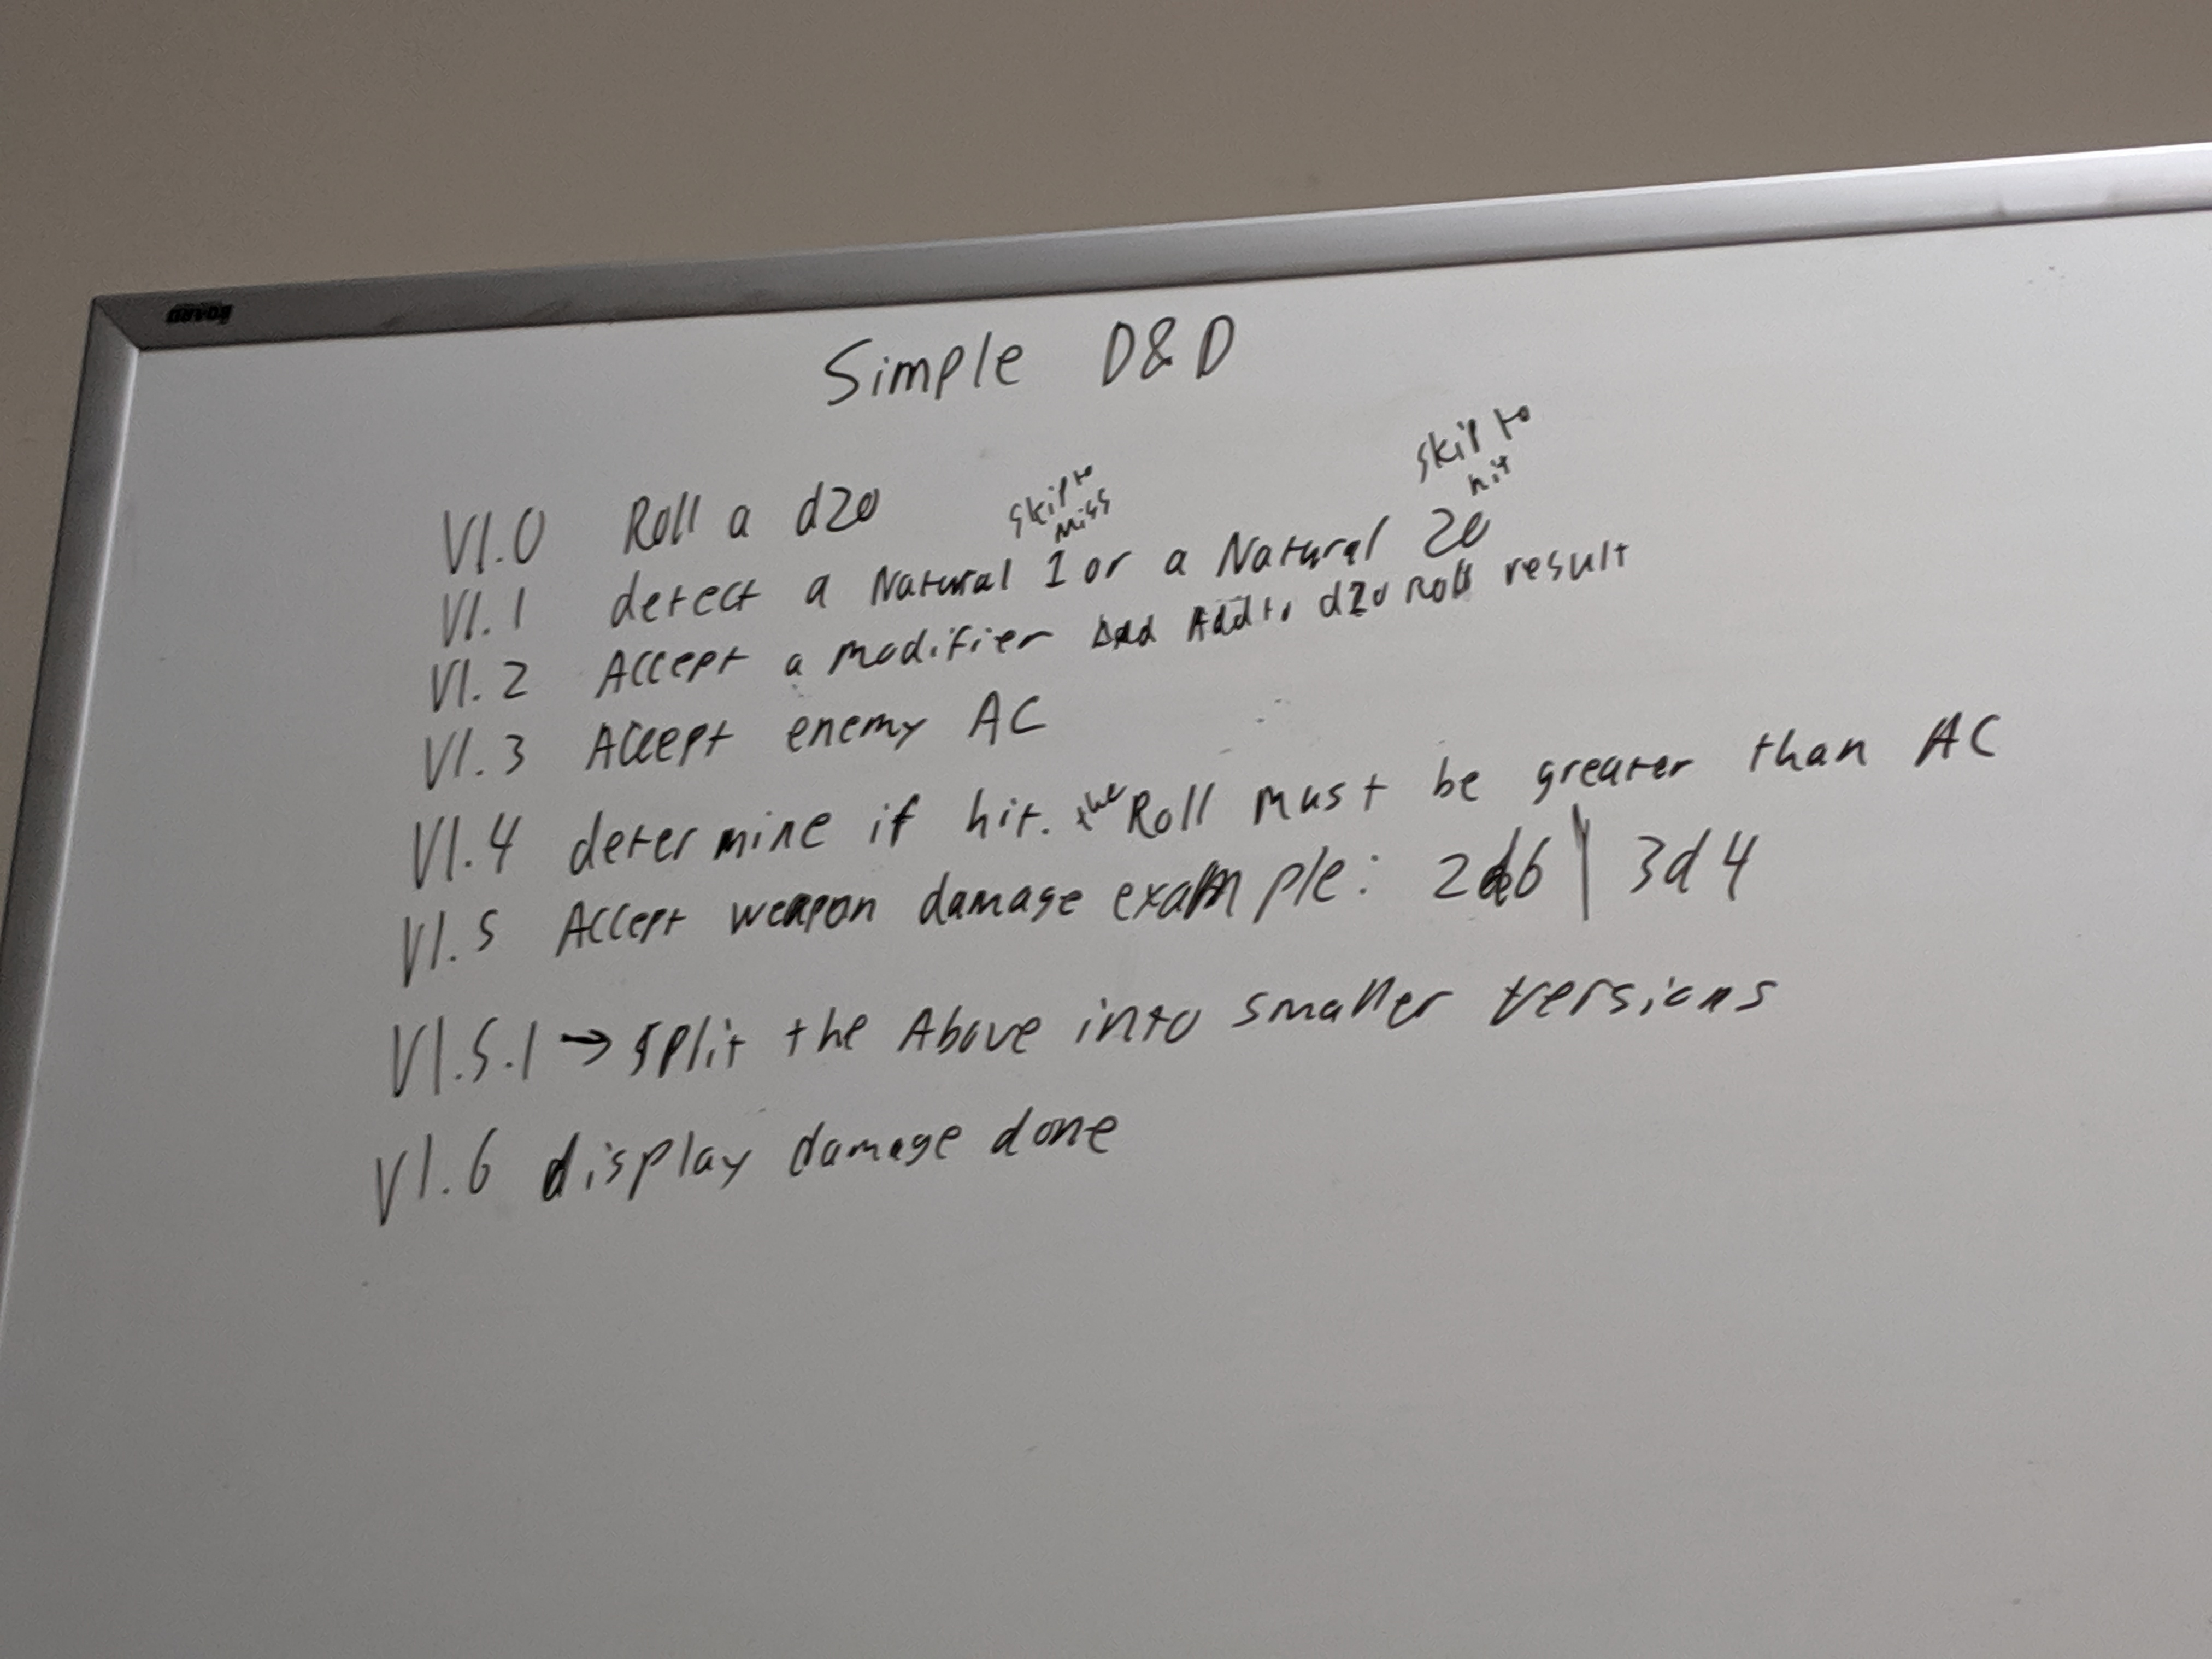 Simple D&D
V1.0 Roll a d20
skip to
miss
skip to
hit
V1.1 detect a Natural 1 or a Natural 20
V1.2 Accept a modifier And Add to d20 Roll result
V1.3 Accept enemy AC
V1.4 determine if hit. the Roll must be greater than AC
V1.5 Accept weapon damage example: 2d6 | 3d4
V1.5.1 → split the Above into smaller versions
V1.6 display damage done